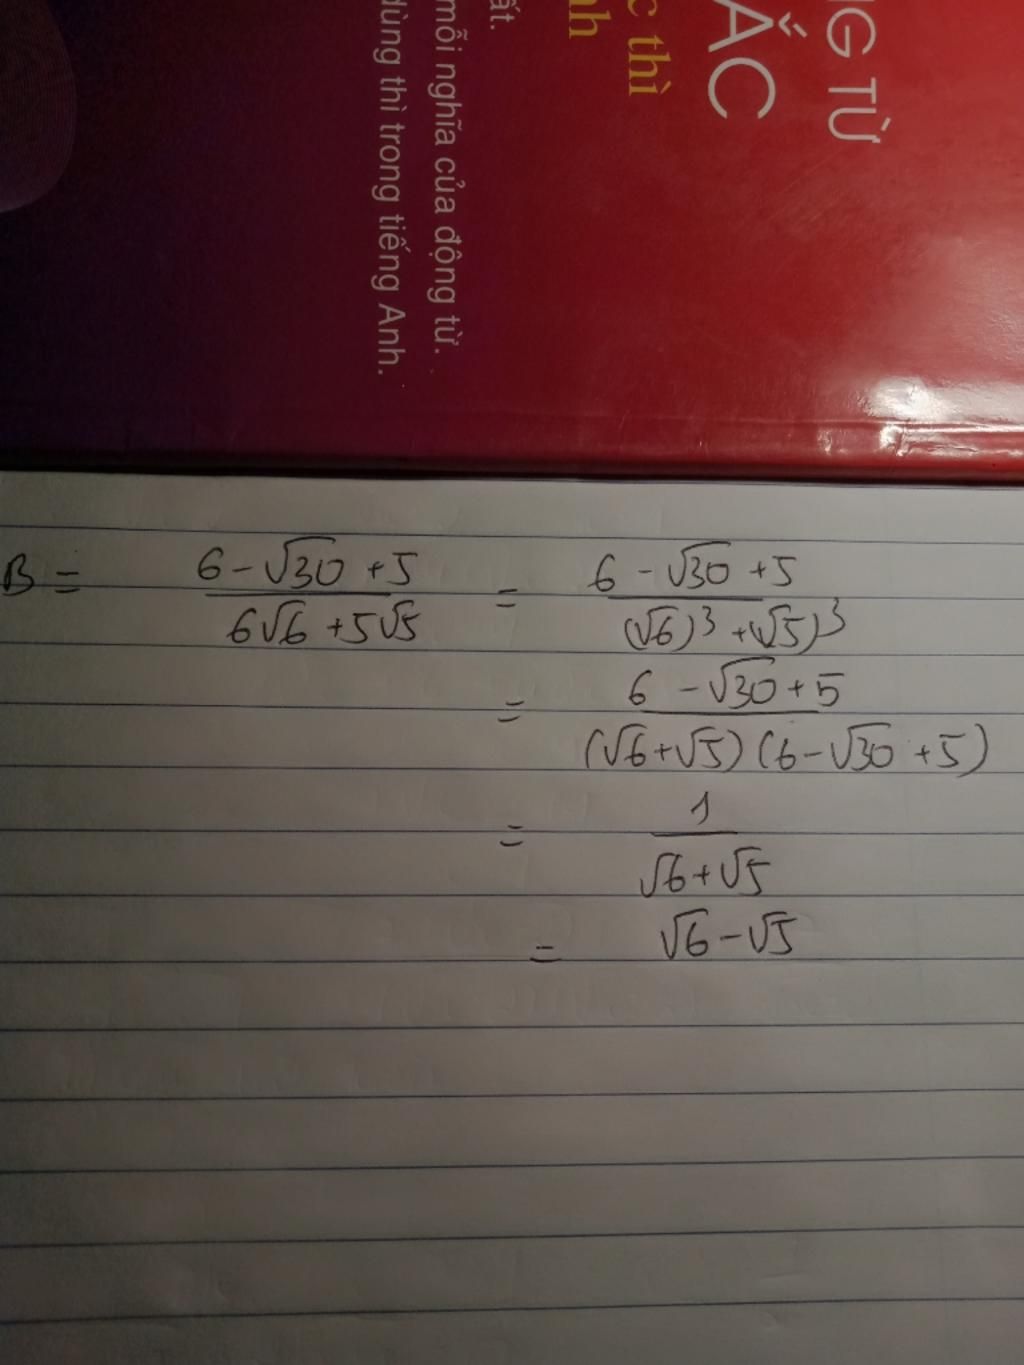 NG TỪ
ẮC
c thì
nh
ất.
mỗi nghĩa của động từ.
dùng thì trong tiếng Anh.
B = (6 - √30 + 5)/(6√6 + 5√5) = (6 - √30 + 5)/((√6)³ + (√5)³
= (6 - √30 + 5)/((√6 + √5)(6 - √30 + 5))
= 1/(√6 + √5)
= √6 - √5